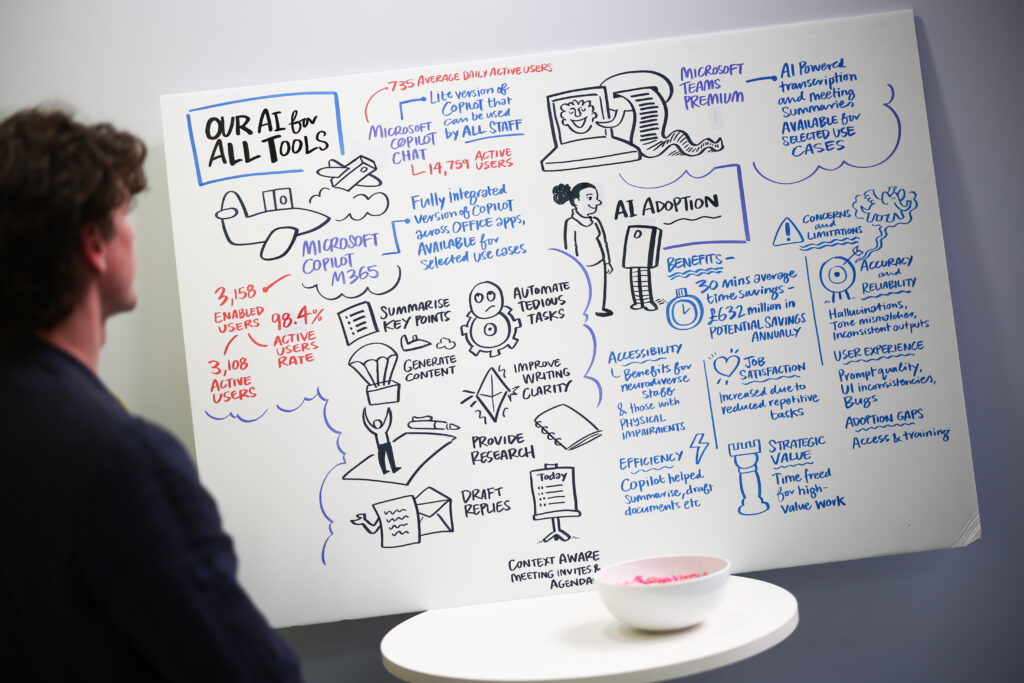 OUR AI for
ALL TOOLS
735 AVERAGE DAILY ACTIVE USERS
MICROSOFT
COPILOT
CHAT
Lite version of
COPILOT that
can be used
by ALL STAFF
14,759 ACTIVE
USERS
MICROSOFT
COPILOT
M365
Fully integrated
version of COPILOT
across OFFICE apps,
AVAILABLE for
selected use cases
3,158
ENABLED
USERS
98.4%
ACTIVE
USERS
RATE
3,108
ACTIVE
USERS
SUMMARISE
KEY POINTS
AUTOMATE
TEDIOUS
TASKS
GENERATE
CONTENT
IMPROVE
WRITING
CLARITY
PROVIDE
RESEARCH
DRAFT
REPLIES
Today
CONTEXT AWARE
MEETING INVITES &
AGENDAS
MICROSOFT
TEAMS
PREMIUM
AI Powered
transcription
and meeting
Summaries,
AVAILABLE for
selected USE
CASES
AI ADOPTION
BENEFITS -
30 mins average
time savings -
£632 million in
POTENTIAL SAVINGS
ANNUALLY
ACCESSIBILITY
Benefits for
neurodiverse
staff
& those with
PHYSICAL
IMPAIRMENTS
JOB
SATISFACTION
Increased due to
reduced repetitive
tasks
EFFICIENCY
Copilot helped
summarise, draft
documents etc
STRATEGIC
VALUE
Time freed
for high-
value work
CONCERNS
and
LIMITATIONS
ACCURACY
and
RELIABILITY
Hallucinations,
Tone mismatches,
inconsistent outputs
USER EXPERIENCE
Prompt quality,
UI inconsistencies,
Bugs
ADOPTION GAPS
Access & training